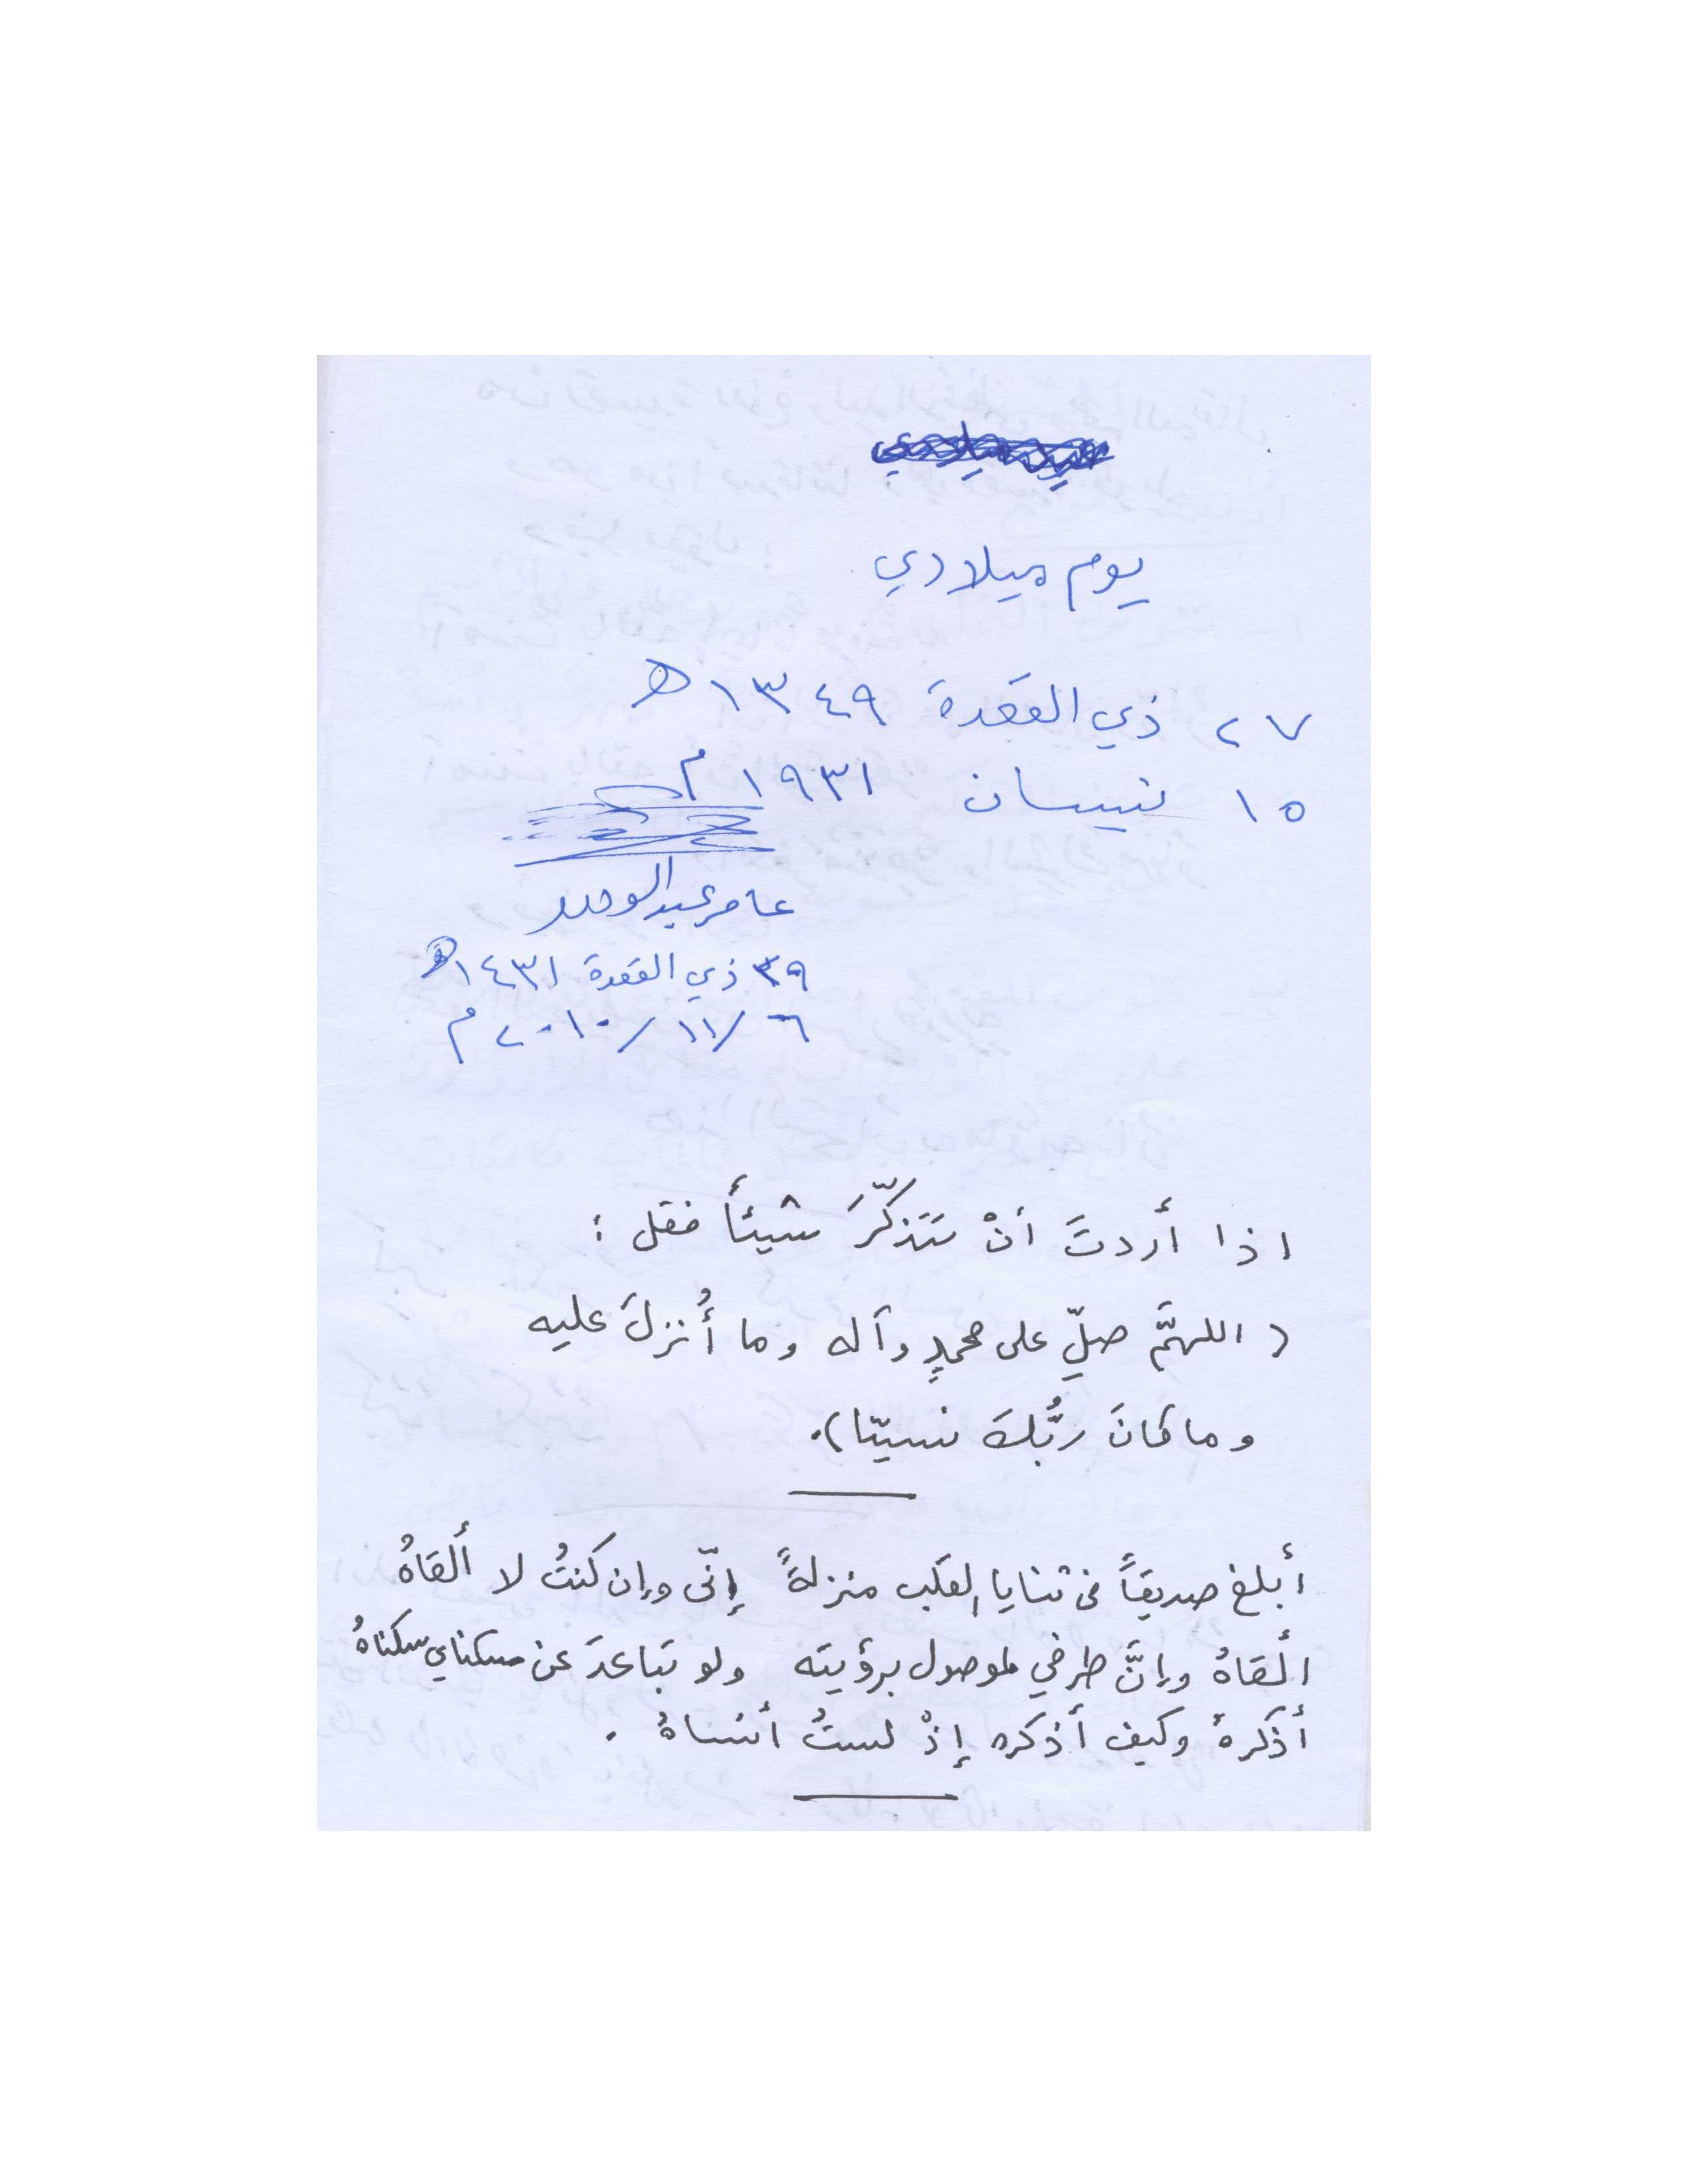 يوم ميلادي
٢٧ ذي القعدة ١٣٤٩ هـ
١٥ نيسان ١٩٣١ م
عامر عبد الوحد
٢٩ ذي القعدة ١٤٣١ هـ
٦/١١/٢٠١٠ م
اذا أردتَ أنْ تَتَذكّرَ شيئاً فقل :
( اللهمَّ صلِّ على محمدٍ وآله وما أُنزلَ عليه
وما كانَ ربُّكَ نسيّا).
أبلغ صديقاً في ثنايا القلب منزلةً إنّي وإن كنتُ لا ألقاهُ
ألقاهُ وإنَّ طرفي لموصول برؤيته ولو تباعدَ عن سكناي سكناهُ
أذكرهُ وكيف أذكره إذْ لستُ أنساهُ .